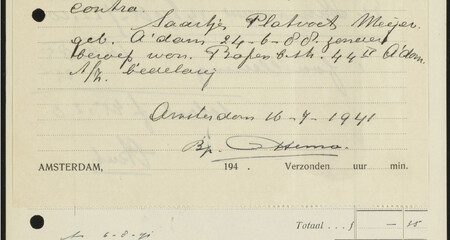 contra.
Saartje Platvoet Meijer
geb. A'dam 24-6-88. zonder
beroep won. Rapenb.str. 44 II A'dam
t/z. bedelarij
Amsterdam 16-7-1941
Bp.
AMSTERDAM, 194 . Verzonden uur min.
Totaal . . f — 25